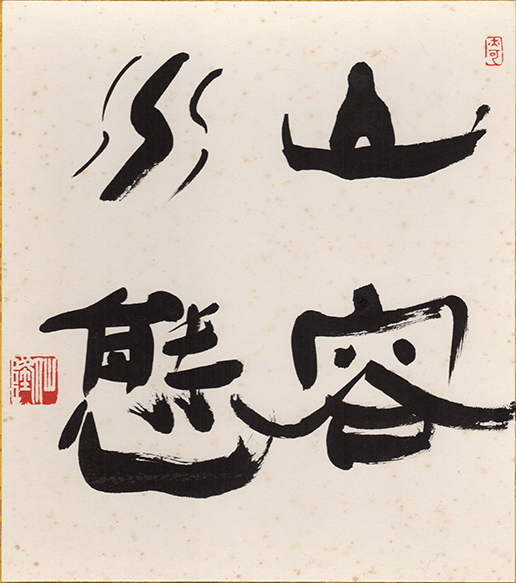 山容
水態